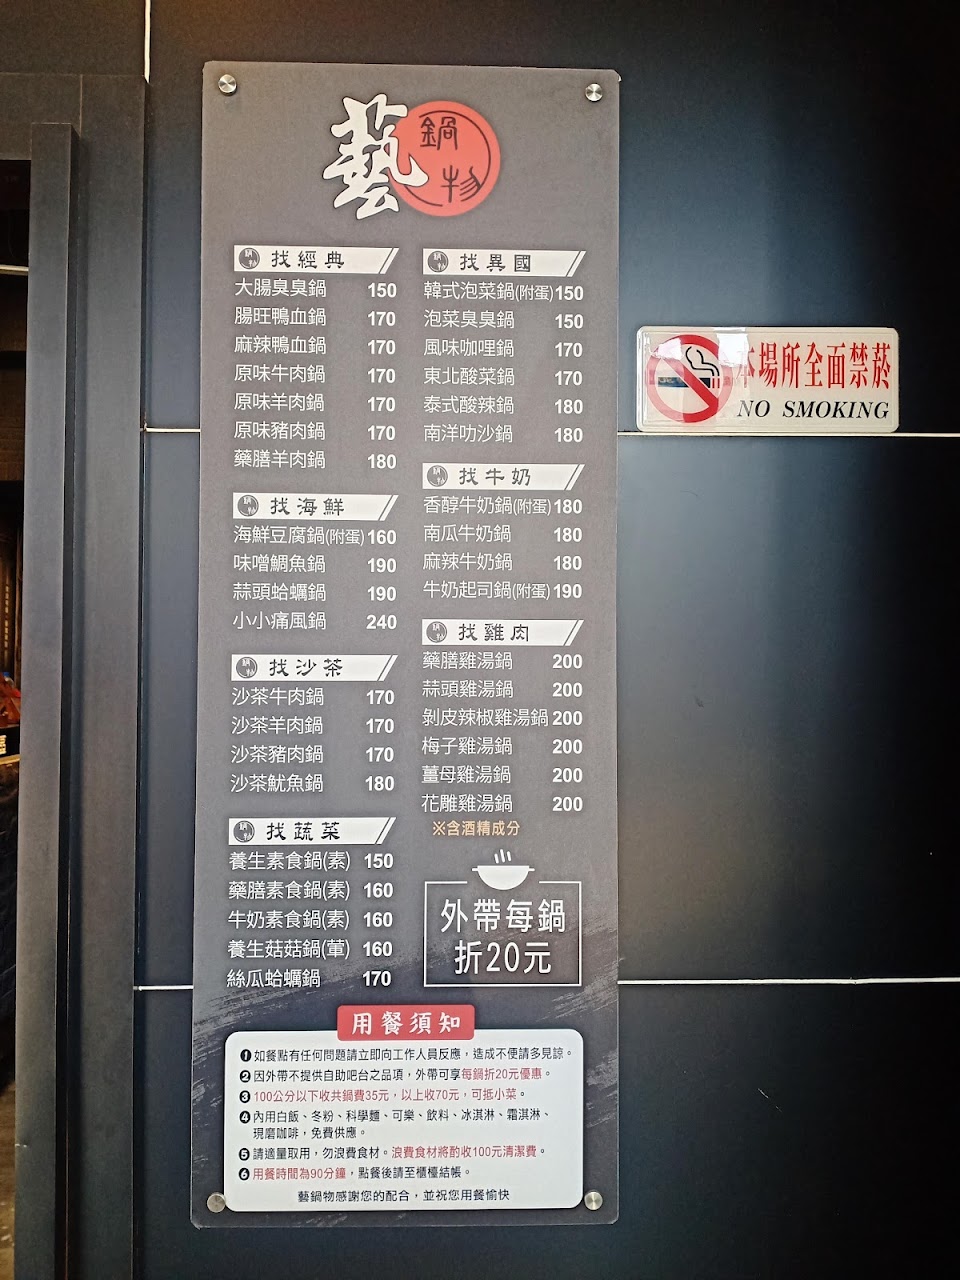 藝
鍋
物
找經典
大腸臭臭鍋 150
腸旺鴨血鍋 170
麻辣鴨血鍋 170
原味牛肉鍋 170
原味羊肉鍋 170
原味豬肉鍋 170
藥膳羊肉鍋 180
找海鮮
海鮮豆腐鍋(附蛋) 160
味噌鯛魚鍋 190
蒜頭蛤蠣鍋 190
小小痛風鍋 240
找沙茶
沙茶牛肉鍋 170
沙茶羊肉鍋 170
沙茶豬肉鍋 170
沙茶魷魚鍋 180
找蔬菜
養生素食鍋(素) 150
藥膳素食鍋(素) 160
牛奶素食鍋(素) 160
養生菇菇鍋(葷) 160
絲瓜蛤蠣鍋 170
找異國
韓式泡菜鍋(附蛋) 150
泡菜臭臭鍋 150
風味咖哩鍋 170
東北酸菜鍋 170
泰式酸辣鍋 180
南洋叻沙鍋 180
找牛奶
香醇牛奶鍋(附蛋) 180
南瓜牛奶鍋 180
麻辣牛奶鍋 180
牛奶起司鍋(附蛋) 190
找雞肉
藥膳雞湯鍋 200
蒜頭雞湯鍋 200
剝皮辣椒雞湯鍋 200
梅子雞湯鍋 200
薑母雞湯鍋 200
花雕雞湯鍋 200
※含酒精成分
外帶每鍋
折20元
用餐須知
❶如餐點有任何問題請立即向工作人員反應，造成不便請多見諒。
❷因外帶不提供自助吧台之品項，外帶可享每鍋折20元優惠。
❸100公分以下收共鍋費35元，以上收70元，可抵小菜。
❹內用白飯、冬粉、科學麵、可樂、飲料、冰淇淋、霜淇淋、
現磨咖啡，免費供應。
❺請適量取用，勿浪費食材。浪費食材將酌收100元清潔費。
❻用餐時間為90分鐘，點餐後請至櫃檯結帳。
藝鍋物感謝您的配合，並祝您用餐愉快
本場所全面禁菸
NO SMOKING